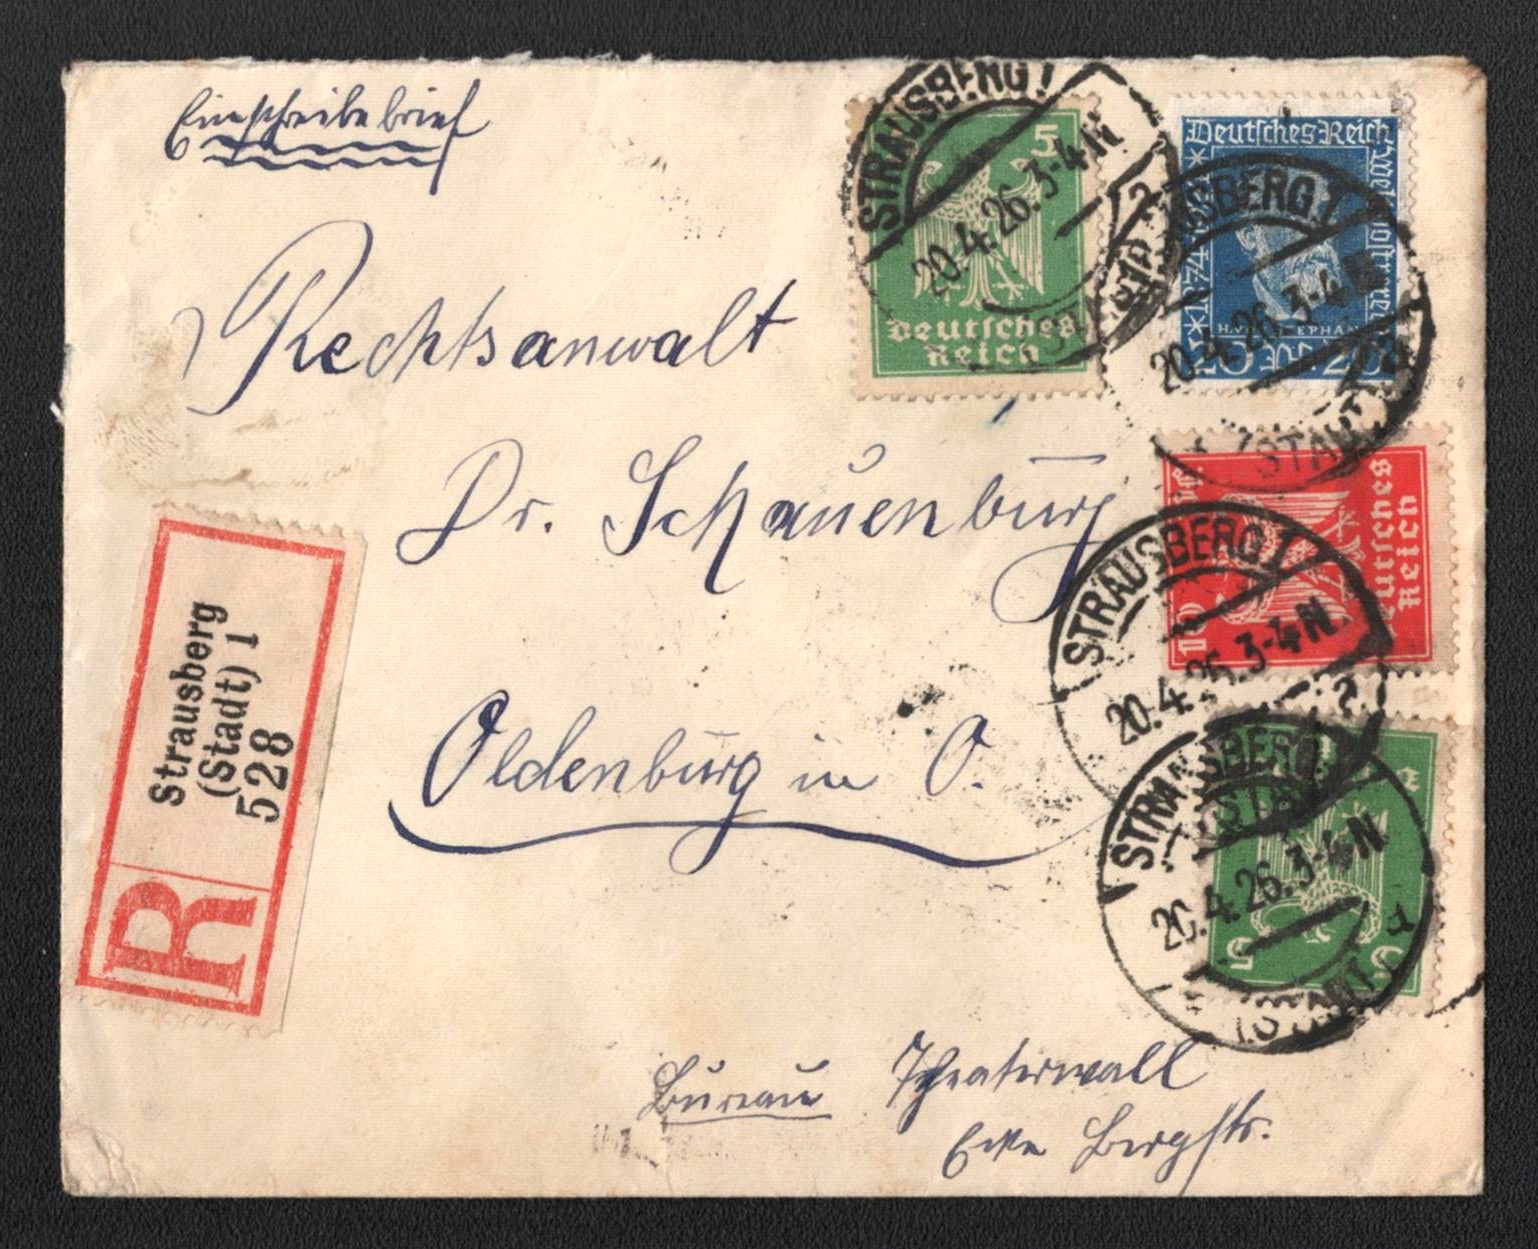 Einschreibebrief
Rechtsanwalt
Dr. Schauenburg
Oldenburg in O.
Bureau Theaterwall
Ecke Bergstr.
Strausberg
(Stadt) 1
528
R
5
Deutsches
Reich
STRAUSBERG 1
20.4.26.3-4N
Deutsches Reich
H.V. STEPHAN
20 20
STRAUSBERG 1
20.4.26.3-4N
(STADT)
10
Deutsches
Reich
STRAUSBERG 1
20.4.26.3-4N
5
STRAUSBERG
20.4.26.3-4N
(STADT)